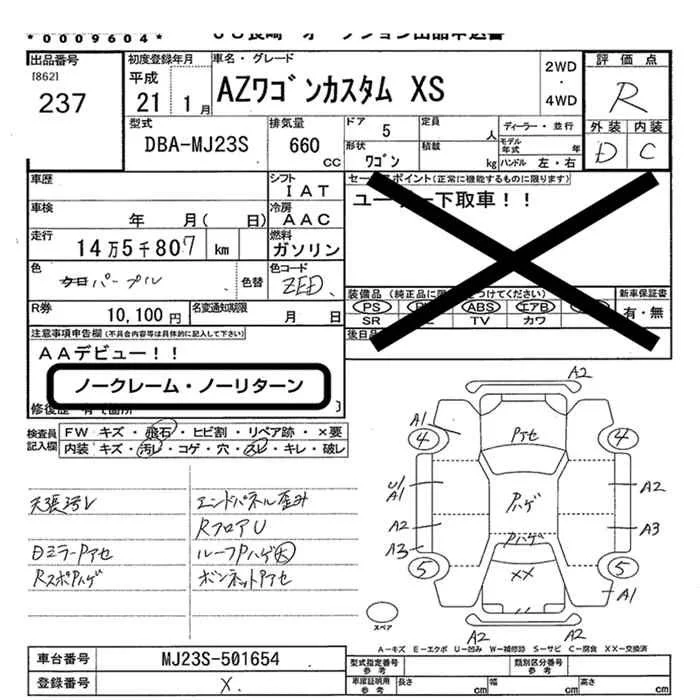 *0009604*
出品番号
[862]
237
初度登録年月
平成
21 1月
車名・グレード
AZワゴンカスタム XS
2WD
・
4WD
評価点
R
外装 内装
D C
型式
DBA-MJ23S
排気量
660
CC
ドア
5
定員
人
ディーラー・並行
モデル
年式 年
形状
ワゴン
積載
kg
ハンドル 左・右
車歴
シフト
IAT
車検
年 月( 日)
冷房
AAC
走行
14万5千807 km
燃料
ガソリン
色
パープル
色替
色コード
ZED
R券
10,100円
名変通知期限
月 日
ユー 下取車!!
装備品
新車保証書
有・無
PS
ABS
エアB
SR
TV
カワ
注意事項申告欄(不具合内容等は具体的に記入して下さい)
AAデビュー!!
ノークレーム・ノーリターン
検査員
記入欄
FW キズ・飛石・ヒビ割・リペア跡・×要
内装 キズ・汚レ・コゲ・穴・スレ・キレ・破レ
天張汚レ
エンドパネル歪み
RフロアU
ルーフPハゲ大
ボンネットPアセ
ミラーPアセ
RスポPハゲ
A2
A1
4
Pアセ
4
U1
A1
Pハゲ
A2
A2
A3
A3
Pハゲ
5
XX
5
A1
A2
A2
スペア
A-キズ E-エクボ U-凹み W-補修跡 S-サビ C-腐食 XX-交換済
車台番号
MJ23S-501654
登録番号
X.
型式指定番号
参考
類別区分番号
参考
車庫証明用
参考
長さ cm
幅 cm
高さ cm